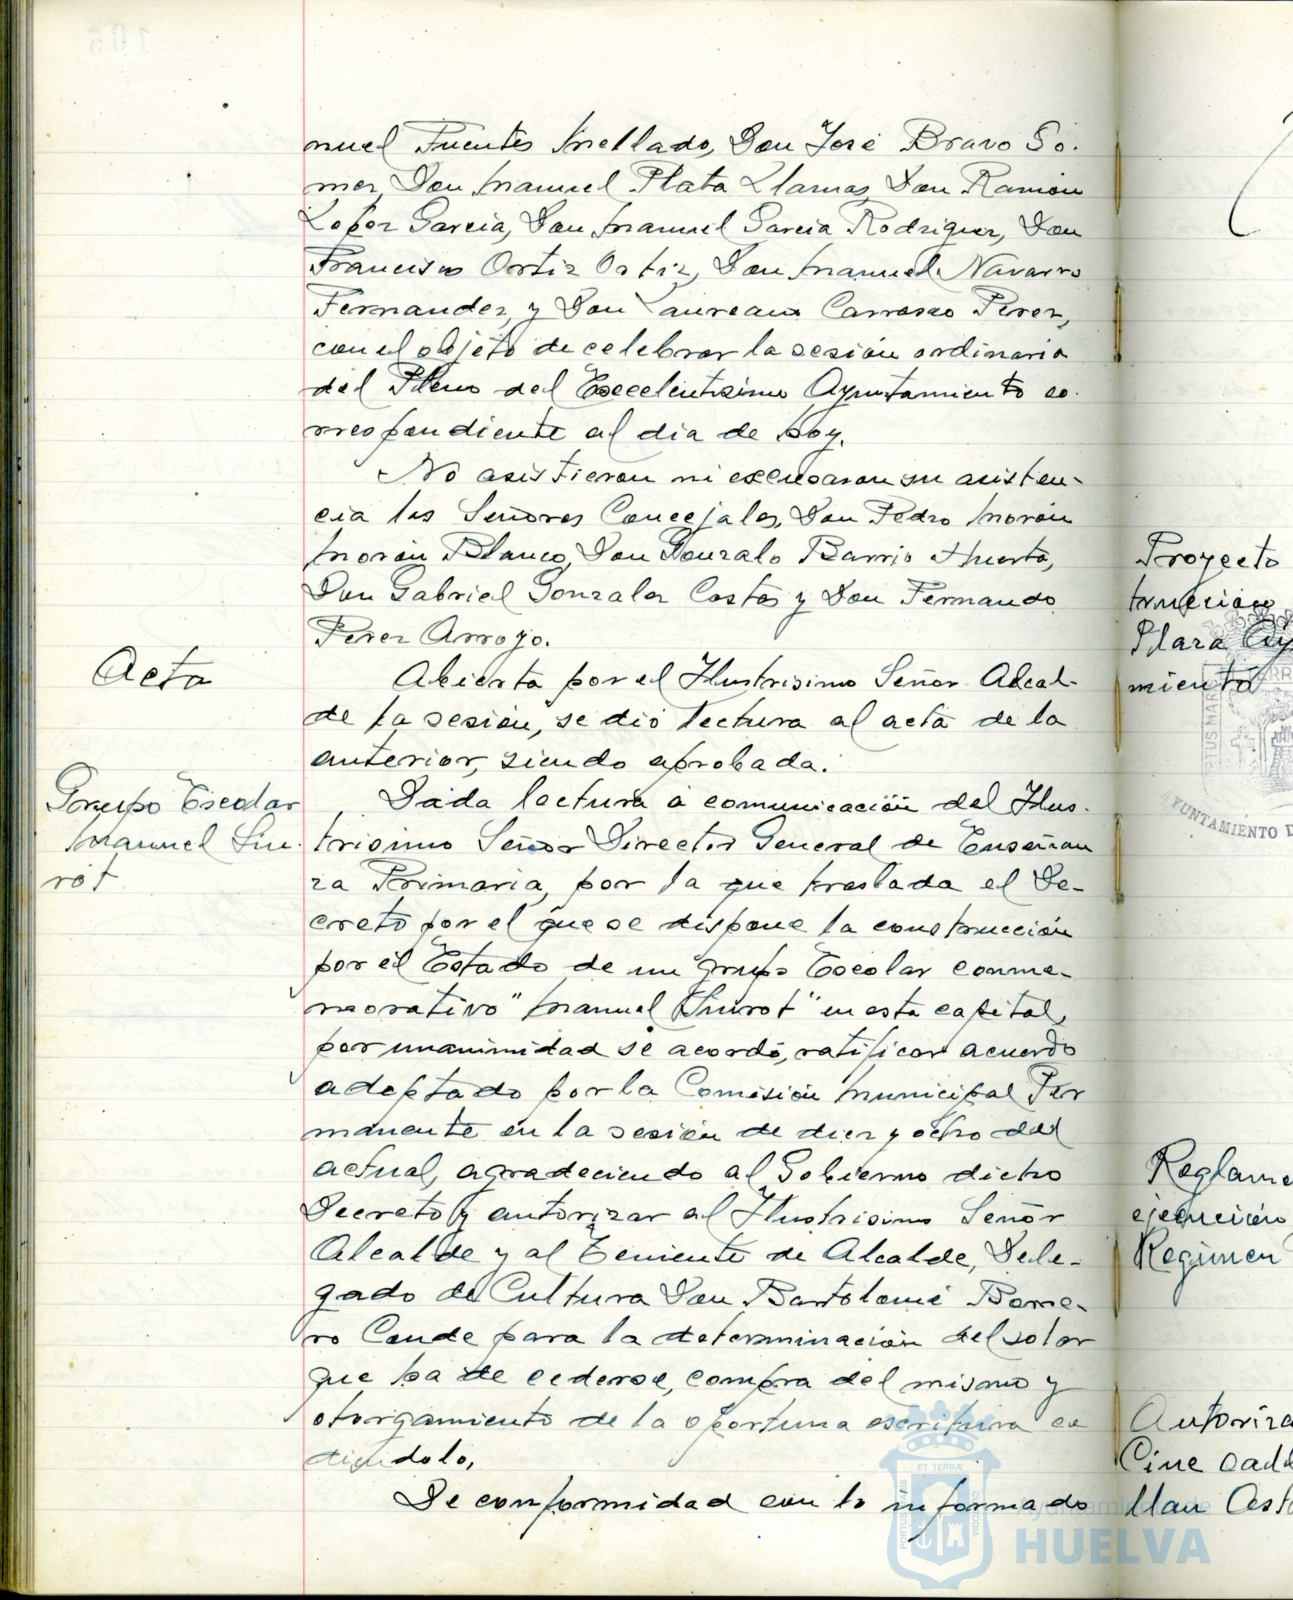 nuel Fuentes Mellado, Don José Bravo Gó-
mez, Don Manuel Plata Llamas, Don Ramón
Lopez Garcia, Don Manuel Garcia Rodriguez, Don
Francisco Ortiz Ortiz, Don Manuel Navarro
Fernandez, y Don Laureano Carrasco Perez,
con el objeto de celebrar la sesión ordinaria
del Pleno del Excelentisimo Ayuntamiento co-
rrespondiente al dia de hoy.
No asistieron ni excusaron su asisten-
cia los Señores Concejales, Don Pedro Morón
Morón Blanco, Don Gonzalo Barrio Huerta,
Don Gabriel Gonzalez Costas y Don Fernando
Perez Arroyo.
Acta
Abierta por el Ilustrisimo Señor Alcal-
de la sesión, se dió lectura al acta de la
anterior, siendo aprobada.
Grupo Escolar
Manuel Siu-
rot
Dada lectura a comunicación del Ilus-
trisimo Señor Director General de Enseñan
za Primaria, por la que traslada el De-
creto por el que se dispone la construcción
por el Estado de un grupo Escolar conme-
morativo "Manuel Siurot" en esta capital,
por unanimidad se acordó, ratificar acuerdo
adoptado por la Comisión Municipal Per
manente en la sesión de diez y ocho del
actual, agradeciendo al Gobierno dicho
Decreto y autorizar al Ilustrisimo Señor
Alcalde y al Teniente de Alcalde, Dele-
gado de Cultura Don Bartolomé Borre-
ro Conde para la determinación del solar
que ha de cederse, compra del mismo y
otorgamiento de la oportuna escritura ce
diendolo,
De conformidad con lo informado
Proyecto
trucción
Plaza Ay
miento
AYUNTAMIENTO D
Reglame
ejecución
Regimen
Autoriza
Cine
llan
ET TERRÆ
PORTUS MARIS
CUSTODIA
Ayuntamiento de
HUELVA